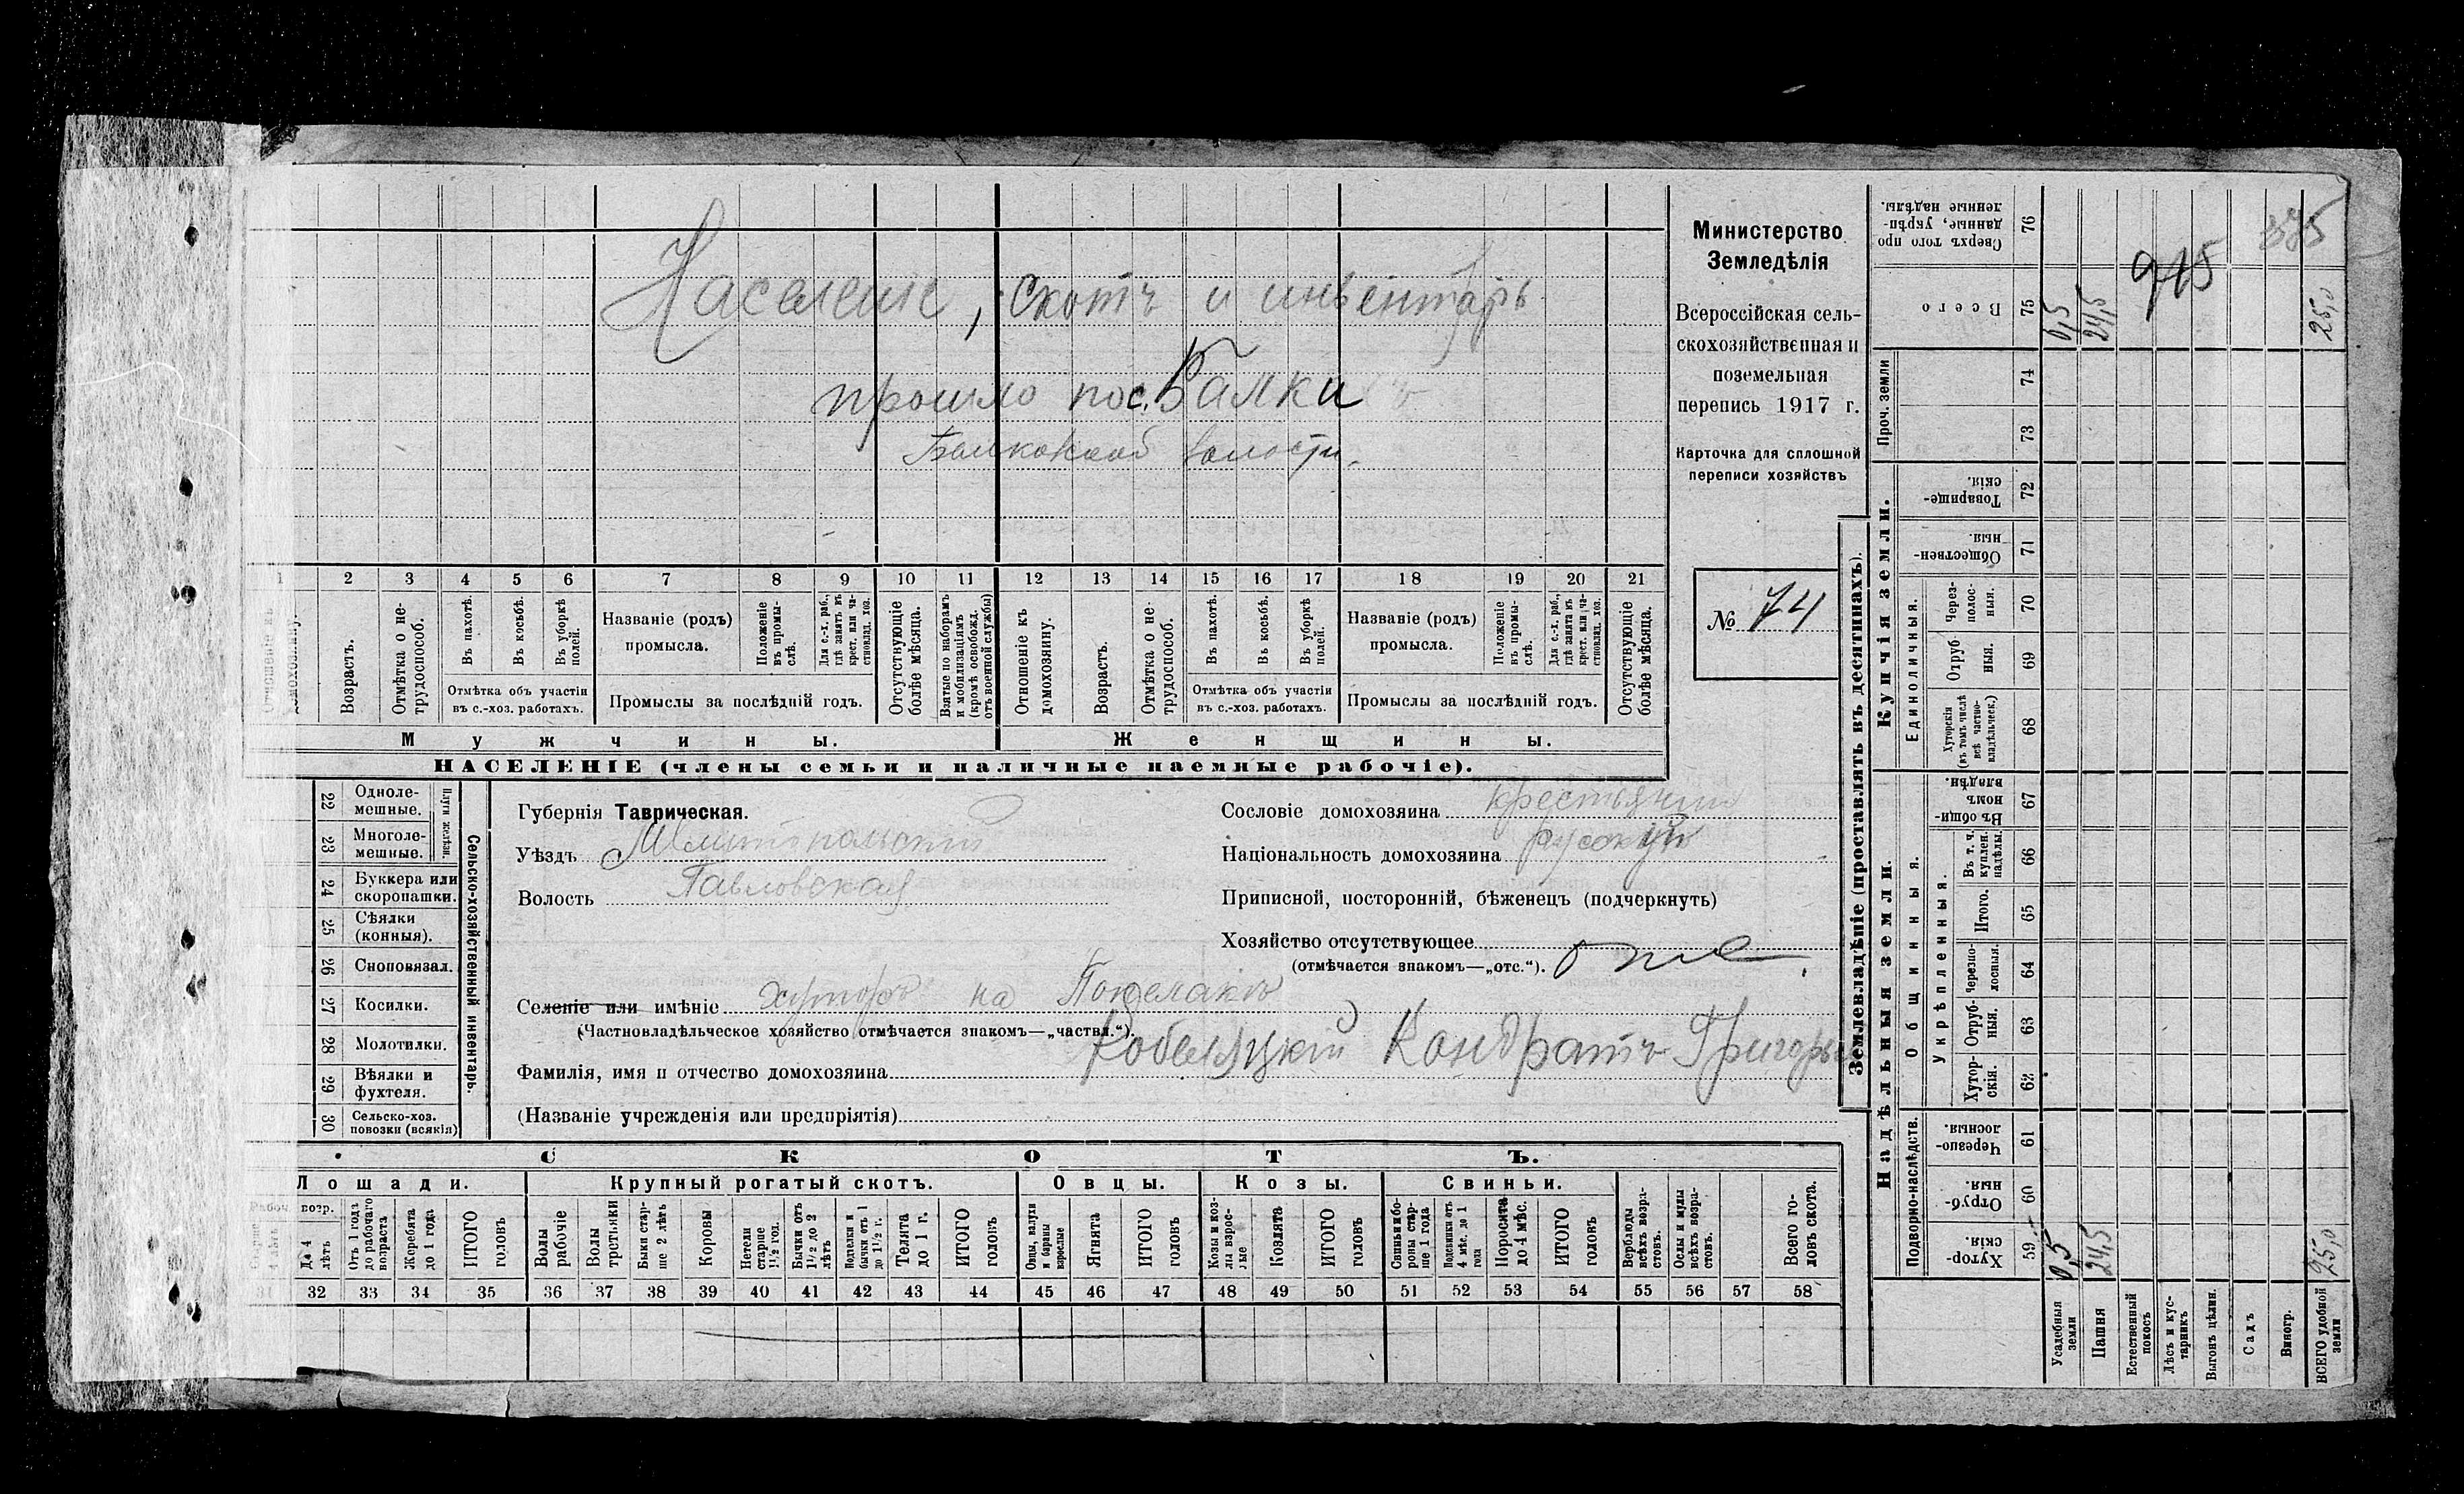 Населеніе, скотъ и инвентарь
прошло по с. Балки
Балковской волости.
1 2 3 4 5 6 7 8 9 10 11 12 13 14 15 16 17 18 19 20 21
Возрастъ.
Отмѣтка о не-
трудоспособ.
Въ пахотѣ.
Въ косьбѣ.
Въ уборкѣ
полей.
Отмѣтка объ участіи
въ с.-хоз. работахъ.
Названіе (родъ)
промысла.
Положеніе
въ промы-
слѣ.
Для с.-х. раб.,
гдѣ занятъ въ
крест. или ча-
стновлад. хоз.
Промыслы за послѣдній годъ.
Отсутствующіе
болѣе мѣсяца.
Взятые по наборамъ
и мобилизаціямъ
(кромѣ освобожд.
отъ военной службы)
Отношеніе къ
домохозяину.
Возрастъ.
Отмѣтка о не-
трудоспособ.
Въ пахотѣ.
Въ косьбѣ.
Въ уборкѣ
полей.
Отмѣтка объ участіи
въ с.-хоз. работахъ.
Названіе (родъ)
промысла.
Положеніе
въ промы-
слѣ.
Для с.-х. раб.,
гдѣ занята въ
крест. или ча-
стновлад. хоз.
Промыслы за послѣдній годъ.
Отсутствующіе
болѣе мѣсяца.
Мужчины.
Женщины.
НАСЕЛЕНІЕ (члены семьи и наличные наемные рабочіе).
Министерство
Земледѣлія
Всероссійская сель-
скохозяйственная и
поземельная
перепись 1917 г.
Карточка для сплошной
переписи хозяйствъ
№ 74
22 Одноле-
мешные.
23 Многоле-
мешные.
Плуги желѣзн.
24 Буккера или
скоропашки.
25 Сѣялки
(конныя).
26 Сноповязал.
27 Косилки.
28 Молотилки.
29 Вѣялки и
фухтеля.
30 Сельско-хоз.
повозки (всякія)
Сельско-хозяйственный инвентарь.
Губернія Таврическая.
Уѣздъ Мелитопольскій
Волость Павловская
Селеніе или имѣніе хуторъ на
(Частновладѣльческое хозяйство отмѣчается знакомъ—„частвл.“).
Фамилія, имя и отчество домохозяина Кобеляцкій Кондратъ Григорьев
(Названіе учрежденія или предпріятія)
Сословіе домохозяина крестьянин
Національность домохозяина русскій
Приписной, посторонній, бѣженец (подчеркнуть)
Хозяйство отсутствующее отс
(отмѣчается знакомъ—„отс.“).
СКОТЪ.
Лошади.
Крупный рогатый скотъ.
Овцы.
Козы.
Свиньи.
Рабоч. возр.
До 4
лѣтъ
Отъ 1 года
до рабочаго
возраста
Жеребята
до 1 года
ИТОГО
головъ
Волы
рабочіе
Волы
третьяки
Быки стар-
ше 2 лѣтъ
Коровы
Нетели
старше
1½ год.
Бычки отъ
1½ до 2
лѣтъ
Подтелки и
бычки отъ 1
до 1½ г.
Телята
до 1 г.
ИТОГО
головъ
Овцы, валухи
и бараны
взрослые
Ягнята
ИТОГО
головъ
Козы и коз-
лы взрос-
лые
Козлята
ИТОГО
головъ
Свиньи и бо-
ровы стар-
ше 1 года
Подсвинки отъ
4 мѣс. до 1
года
Поросята
до 4 мѣс.
ИТОГО
головъ
Верблюды
всѣхъ возра-
стовъ.
Ослы и мулы
всѣхъ возра-
стовъ.
Всего го-
ловъ скота.
31 32 33 34 35 36 37 38 39 40 41 42 43 44 45 46 47 48 49 50 51 52 53 54 55 56 57 58
Землевладѣніе (проставлять въ десятинахъ).
Надѣльныя земли.
Купчія земли.
Проч. земли
Подворно-наслѣдств.
Общинныя.
Укрѣпленныя.
Единоличныя.
Хутор-
скія. 59
Отруб-
ныя. 60
Черезпо-
лосныя. 61
Хутор-
скія. 62
Отруб-
ныя. 63
Черезпо-
лосныя. 64
Итого. 65
Въ т. ч.
куплен.
надѣлы. 66
Въ общи-
номъ
владѣн. 67
Хуторскія
(въ томъ числѣ
всѣ частно-
владѣльческ.) 68
Отруб
ныя. 69
Через-
полос-
ныя. 70
Обществен-
ныя. 71
Товарище-
скія. 72
73
74
Всего 75
Сверхъ того про
данные, укрѣп-
ленные надѣлы. 76
Усадебныя
земли 0,5 0,5
Пашня 24,5 24,5
Естественный
покосъ
Лѣсъ и кус-
тарникъ
Выгонъ цѣлин.
Садъ
Виногр.
ВСЕГО удобной
земли 25,0 25,0